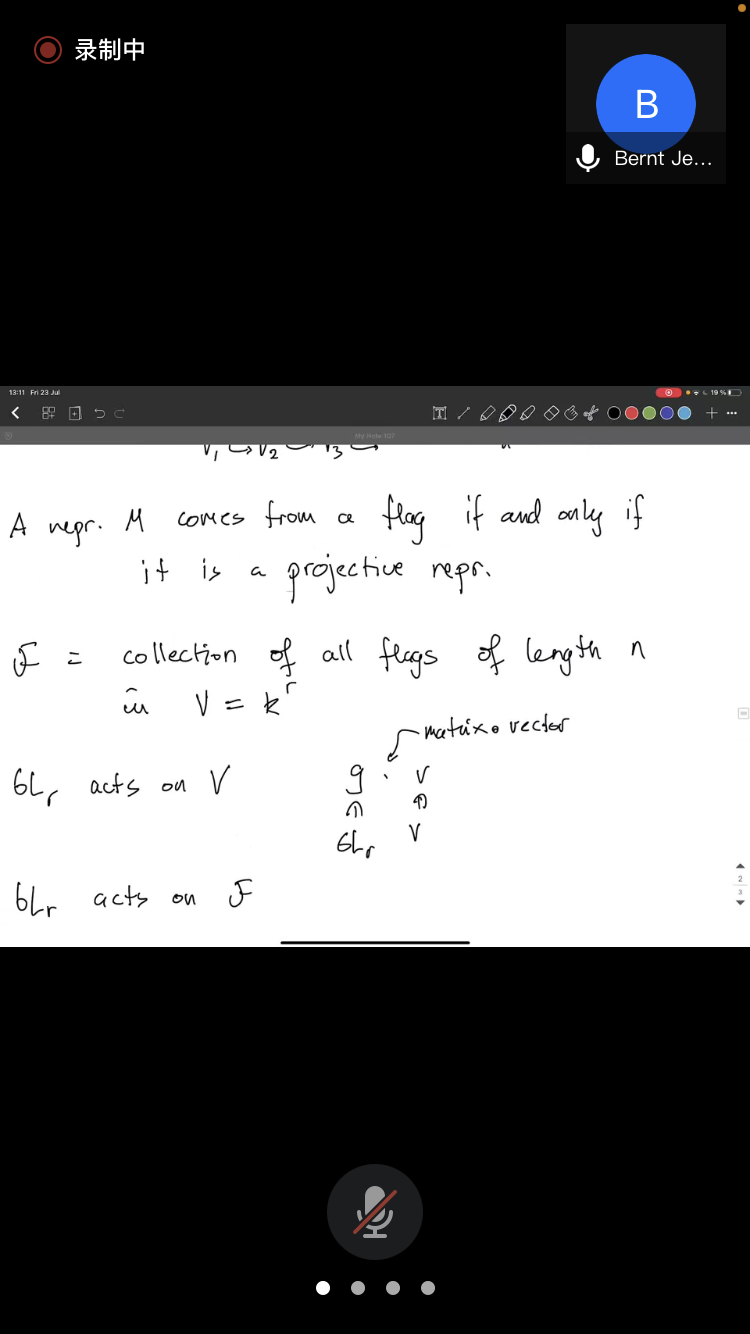 录制中
B
Bernt Je...
13:11 Fri 23 Jul
19 %
My Note 107
V₁ ↪ V₂ ↪ V₃ ↪
A repr. M comes from a flag if and only if
it is a projective repr.
F = collection of all flags of length n
in V = k^r
matrix • vector
GL_r acts on V g · v
GL_r V
GL_r acts on F
2
3